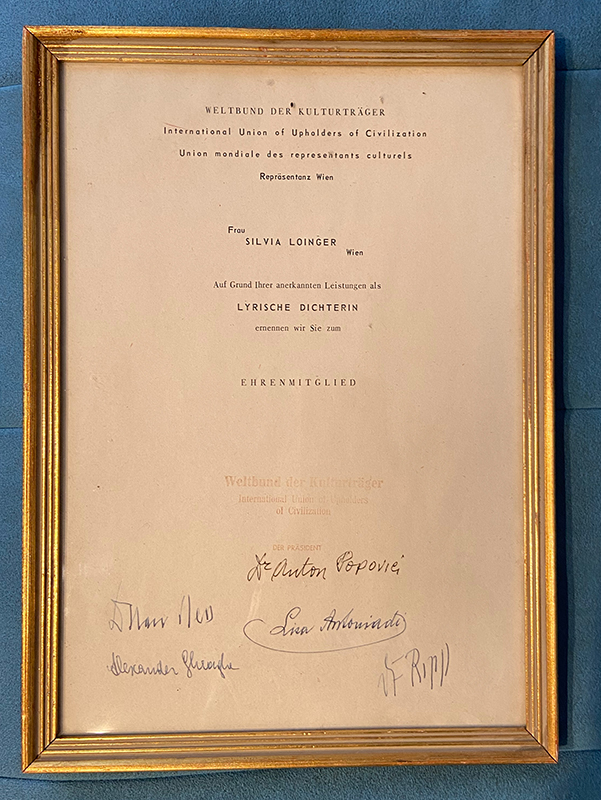 WELTBUND DER KULTURTRÄGER
International Union of Upholders of Civilization
Union mondiale des representants culturels
Repräsentanz Wien
Frau
SILVIA LOINGER
Wien
Auf Grund Ihrer anerkannten Leistungen als
LYRISCHE DICHTERIN
ernennen wir Sie zum
EHRENMITGLIED
Weltbund der Kulturträger
International Union of Upholders
of Civilization
DER PRÄSIDENT
Dr Anton Popovici
Lisa Antoniade
Alexander